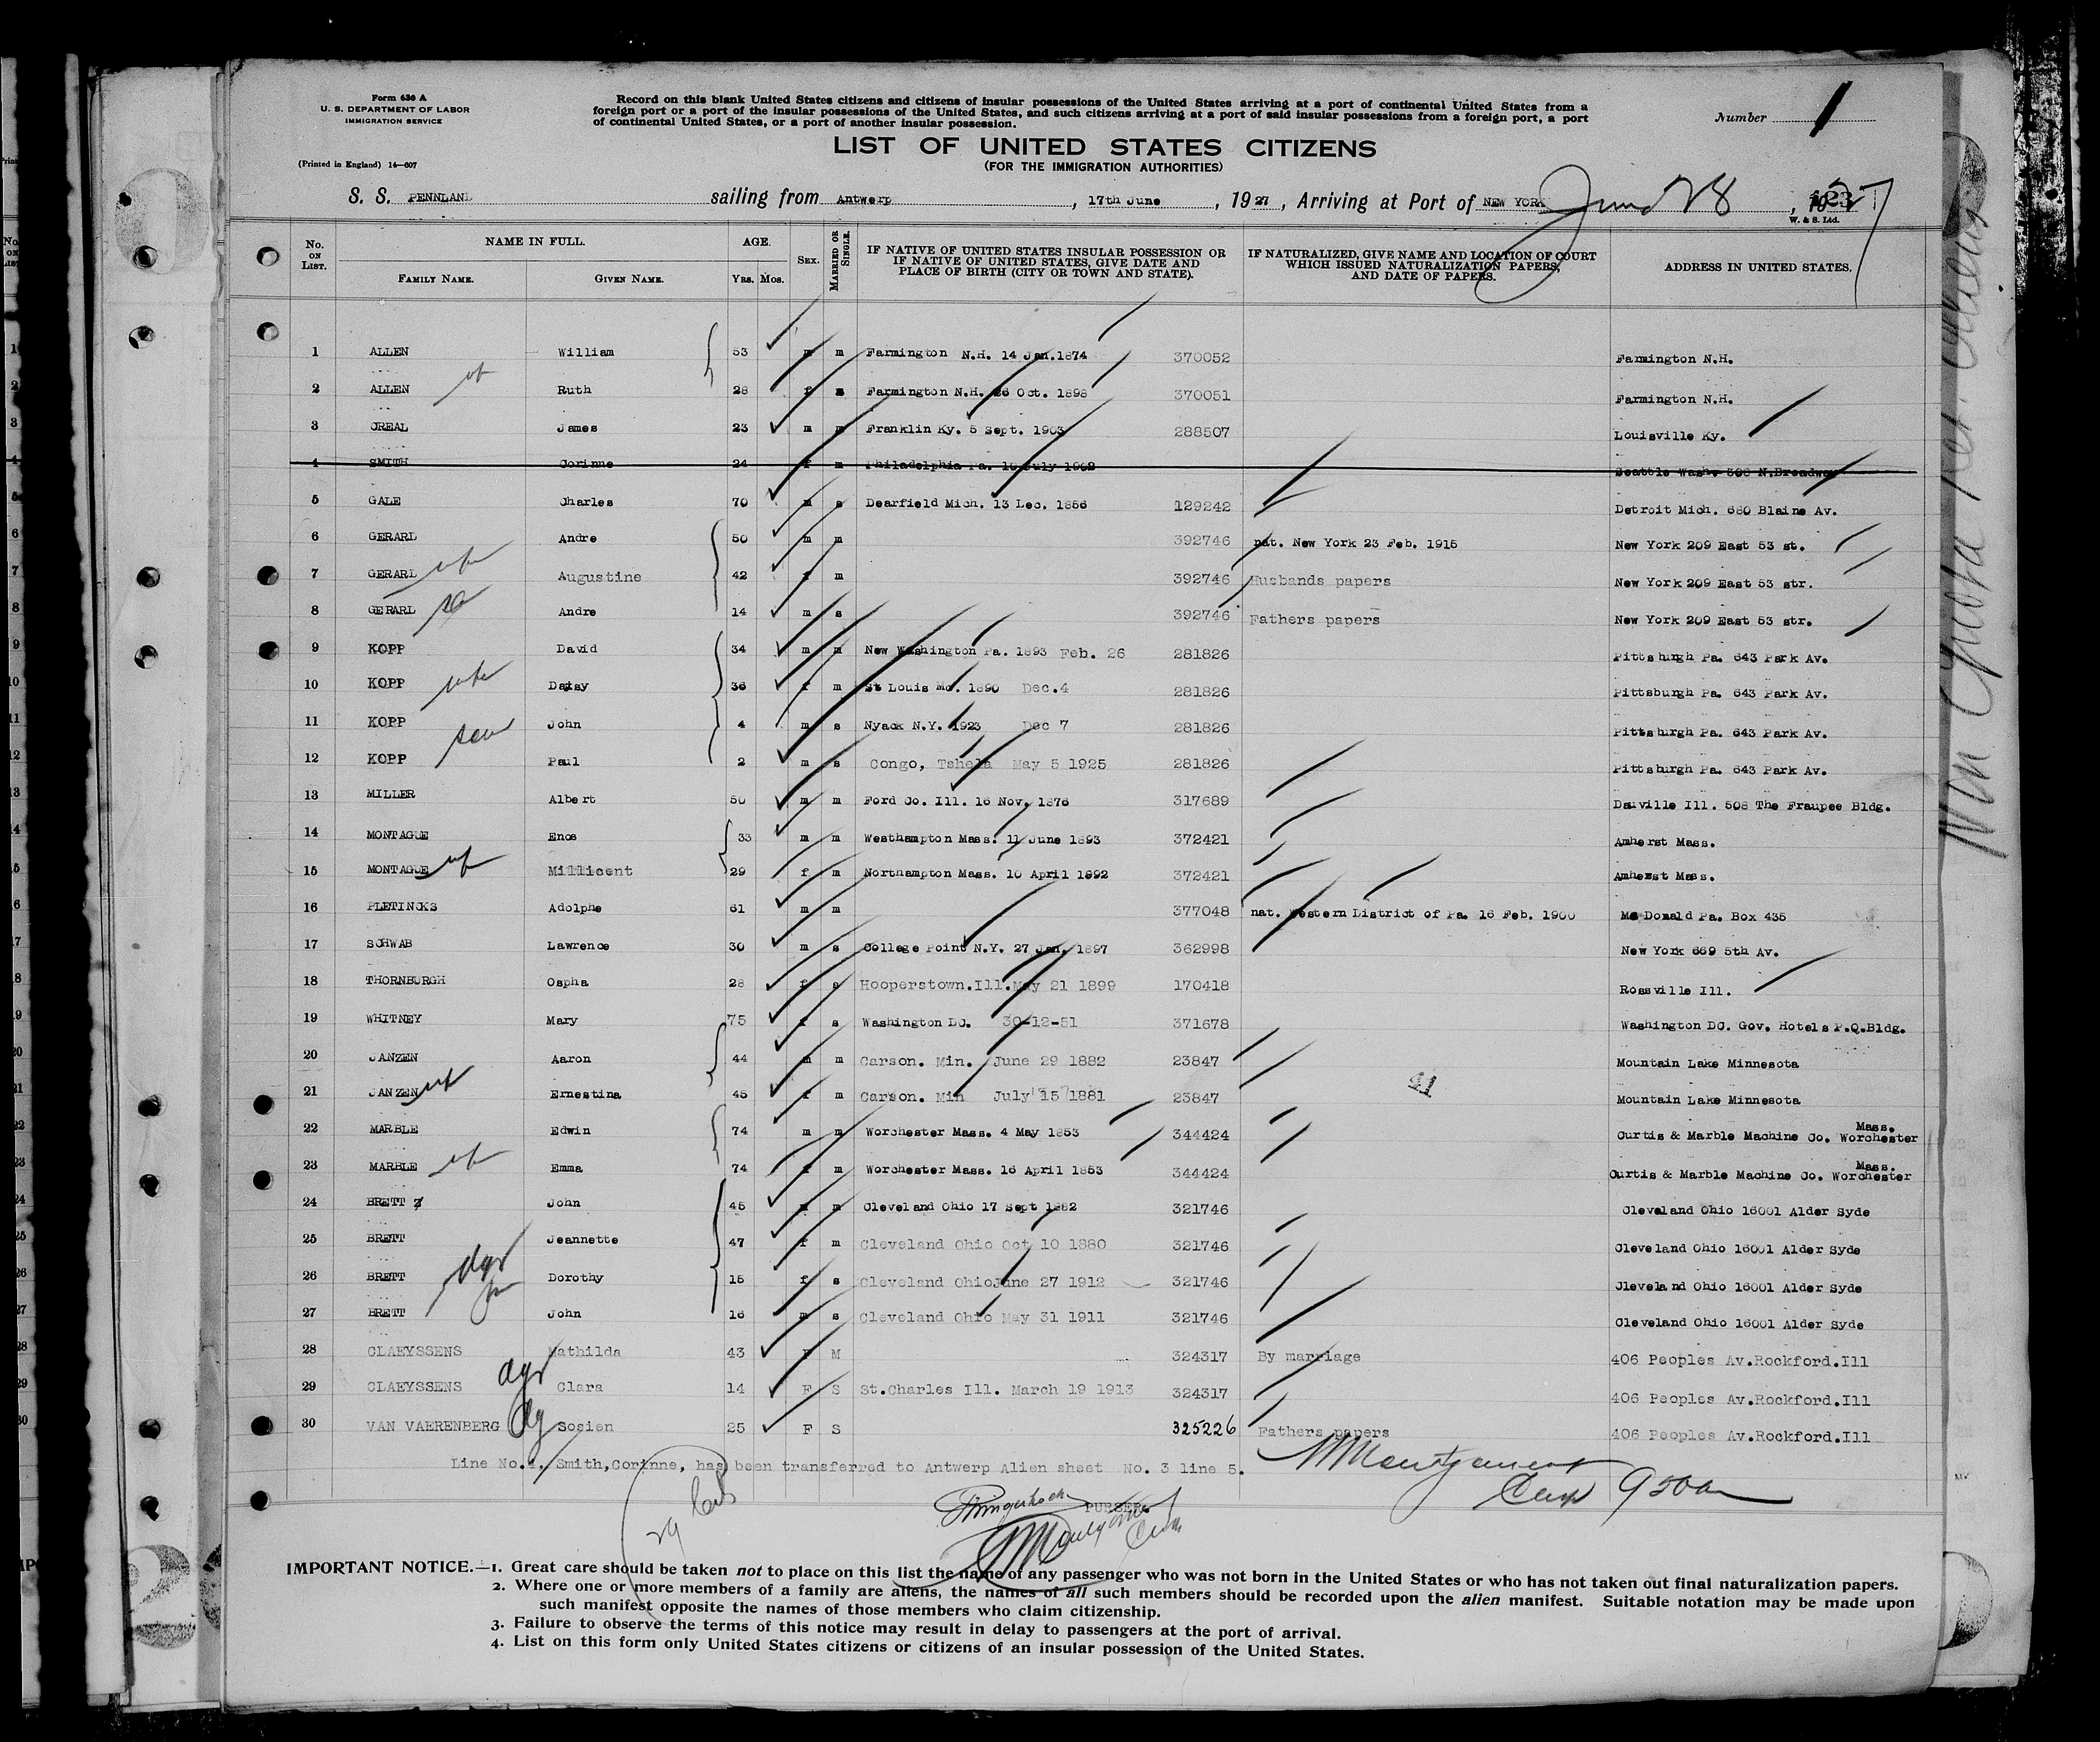 Form 630 A
U. S. DEPARTMENT OF LABOR
IMMIGRATION SERVICE
(Printed in England) 14—607
Record on this blank United States citizens and citizens of insular possessions of the United States arriving at a port of continental United States from a
foreign port or a port of the insular possessions of the United States, and such citizens arriving at a port of said insular possessions from a foreign port, a port
of continental United States, or a port of another insular possession.
Number 1
LIST OF UNITED STATES CITIZENS
(FOR THE IMMIGRATION AUTHORITIES)
S. S. PENNLAND sailing from Antwerp, 17th June, 1927, Arriving at Port of NEW YORK June 28, 1927
W. & S. Ltd.
No. ON LIST. NAME IN FULL. FAMILY NAME. GIVEN NAME. AGE. YRS. MOS. SEX. MARRIED OR SINGLE. IF NATIVE OF UNITED STATES INSULAR POSSESSION OR IF NATIVE OF UNITED STATES, GIVE DATE AND PLACE OF BIRTH (CITY OR TOWN AND STATE). IF NATURALIZED, GIVE NAME AND LOCATION OF COURT WHICH ISSUED NATURALIZATION PAPERS, AND DATE OF PAPERS. ADDRESS IN UNITED STATES.
1 ALLEN William 53 m m Farmington N.H. 14 Jan.1874 370052 Farmington N.H.
2 ALLEN wf Ruth 28 f Farmington N.H. 26 Oct. 1898 370051 Farmington N.H.
3 CREAL James 23 m m Franklin Ky. 5 Sept. 1903 288507 Louisville Ky.
4 SMITH Corinne 24 f m Philadelphia Pa. 19 July 1902 Seattle Wash. 308 N.Broadway
5 GALE Charles 70 m s Dearfield Mich. 13 Dec. 1856 129242 Detroit Mich. 680 Blaine Av.
6 GERARD Andre 50 m m 392746 nat. New York 23 Feb. 1915 New York 209 East 53 st.
7 GERARD wife Augustine 42 f m 392746 Husbands papers New York 209 East 53 str.
8 GERARD Andre 14 m s 392746 Fathers papers New York 209 East 53 str.
9 KOPP David 34 m m New Washington Pa. 1893 Feb. 26 281826 Pittsburgh Pa. 643 Park Av.
10 KOPP wife Daisy 36 f m St Louis Mo. 1890 Dec.4 281826 Pittsburgh Pa. 643 Park Av.
11 KOPP John 4 m s Nyack N.Y. 1923 Dec 7 281826 Pittsburgh Pa. 643 Park Av.
12 KOPP son Paul 2 m s Congo, Tshela May 5 1925 281826 Pittsburgh Pa. 643 Park Av.
13 MILLER Albert 50 m m Ford Co. Ill. 16 Nov. 1876 317689 Danville Ill. 508 The Fraupee Bldg.
14 MONTAGUE Enos 33 m m Westhampton Mass. 11 June 1893 372421 Amherst Mass.
15 MONTAGUE wf Millicent 29 f m Northampton Mass. 10 April 1892 372421 Amherst Mass.
16 PLETINCKS Adolphe 61 m m 377048 nat. Western District of Pa. 16 Feb. 1900 Mc Donald Pa. Box 435
17 SCHWAB Lawrence 30 m s College Point N.Y. 27 Jan. 1897 362998 New York 669 5th Av.
18 THORNBURGH Ospha 28 f s Hooperstown.Ill.May 21 1899 170418 Rossville Ill.
19 WHITNEY Mary 75 f s Washington DC. 30-12-51 371678 Washington DC. Gov. Hotels P.Q.Bldg.
20 JANZEN Aaron 44 m m Carson. Min. June 29 1882 23847 Mountain Lake Minnesota
21 JANZEN wf Ernestina 45 f m Carson. Min July 15 1881 23847 Mountain Lake Minnesota
41
22 MARBLE Edwin 74 m m Worchester Mass. 4 May 1853 344424 Curtis & Marble Machine Co. Worchester Mass.
23 MARBLE wf Emma 74 f m Worchester Mass. 16 April 1853 344424 Curtis & Marble Machine Co. Worchester Mass.
24 BRETT John 45 m m Cleveland Ohio 17 Sept 1882 321746 Cleveland Ohio 16001 Alder Syde
25 BRETT Jeannette 47 f m Cleveland Ohio Oct 10 1880 321746 Cleveland Ohio 16001 Alder Syde
26 BRETT Dorothy 15 f s Cleveland Ohio June 27 1912 321746 Cleveland Ohio 16001 Alder Syde
27 BRETT John 16 m s Cleveland Ohio May 31 1911 321746 Cleveland Ohio 16001 Alder Syde
28 CLAEYSSENS Mathilda 43 F M 324317 By marriage 406 Peoples Av.Rockford.Ill
29 CLAEYSSENS Clara 14 F S St.Charles Ill. March 19 1913 324317 406 Peoples Av.Rockford.Ill
30 VAN VAERENBERG Sosien 25 F S 325226 Fathers papers 406 Peoples Av.Rockford.Ill
Line No.4. Smith,Corinne, has been transferred to Antwerp Alien sheet No. 3 line 5.
PURSER.
IMPORTANT NOTICE.—1. Great care should be taken not to place on this list the name of any passenger who was not born in the United States or who has not taken out final naturalization papers.
2. Where one or more members of a family are aliens, the names of all such members should be recorded upon the alien manifest. Suitable notation may be made upon
such manifest opposite the names of those members who claim citizenship.
3. Failure to observe the terms of this notice may result in delay to passengers at the port of arrival.
4. List on this form only United States citizens or citizens of an insular possession of the United States.